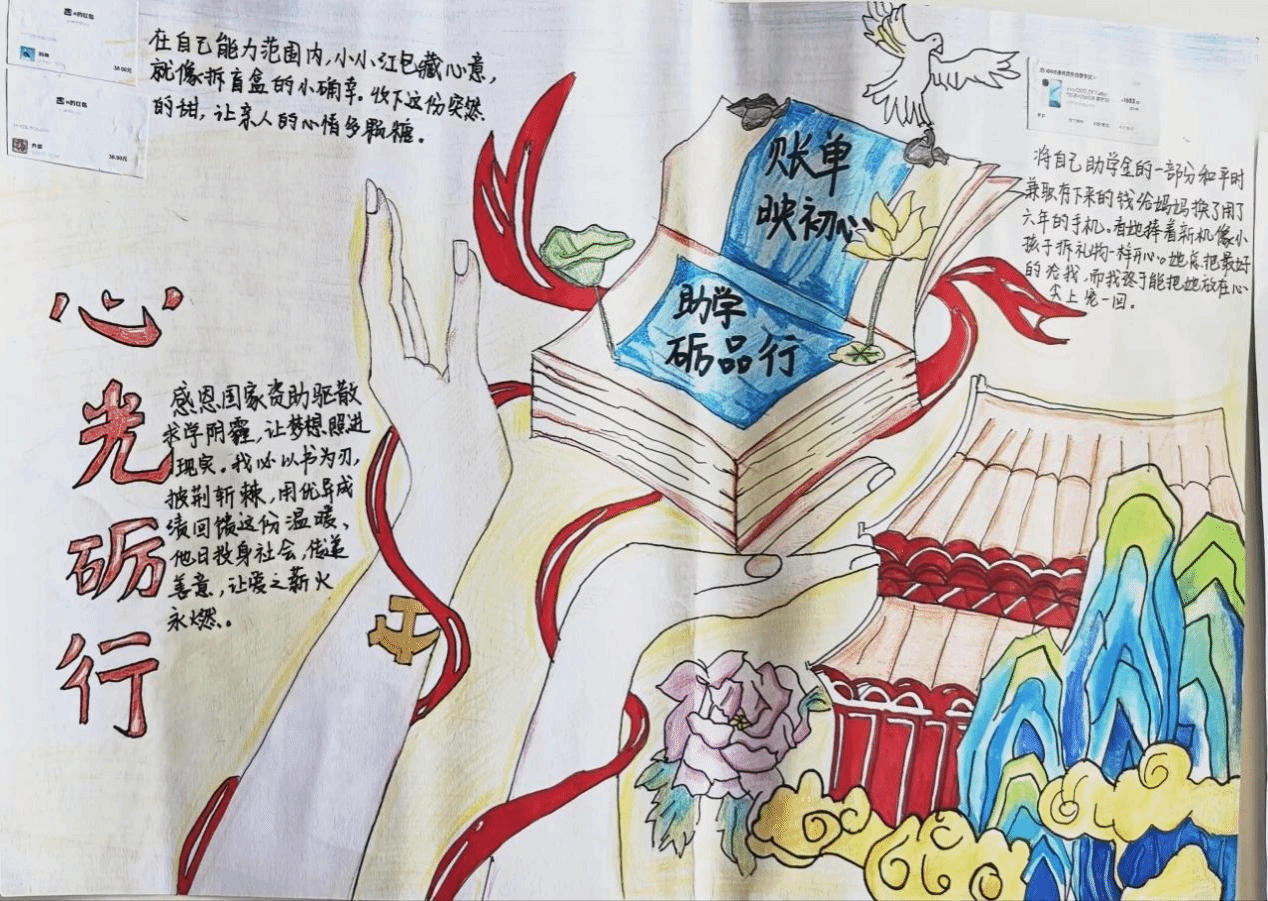 的红包
38.00元
的红包
38.00元
在自己能力范围内,小小红包藏心意,
就像拆盲盒的小确幸。收下这份突然
的甜,让亲人的心情多颗糖。
账单
映初心
助学
砺品行
将自己助学金的一部分和平时
兼职存下来的钱给妈妈换了用了
六年的手机。看她捧着新机像小
孩子拆礼物一样开心。她总把最好
的给我,而我终于能把她放在心
尖上宠一回。
心光砺行
感恩国家资助驱散
求学阴霾,让梦想照进
现实。我必以书为刃,
披荆斩棘,用优异成
绩回馈这份温暖、
他日投身社会,传递
善意,让爱之薪火
永燃。